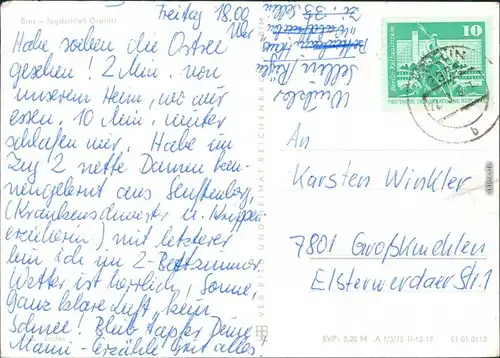 Binz – Jagdschloß Granitz
Freitag 18.00
Uhr
Habe soeben die Ostsee
gesehen! 2 Min. von
unserem Heim, wo wir
essen. 10 Min. weiter
schlafen wir. Habe im
Zug 2 nette Damen ken-
nengelernt aus Senftenberg,
(Krankenschwester u. Krippen-
erzieherin) mit letzterer
bin ich im 2-Bettzimmer
Wetter ist herrlich, Sonne,
ganz klare Luft, kein
Schnee! Bleib tapfer Deine
Mami - Erzähle mit alles!
Winkler
Sellin Rügen
Zi. 35 Sellin
VEB BILD UND HEIMAT REICHENBACH
10
An
Karsten Winkler
7801 Großkmehlen
Elsterwerdaer Str. 1
EVP: 0,20 M A 1/3/75 II-15-17 01 01 0113